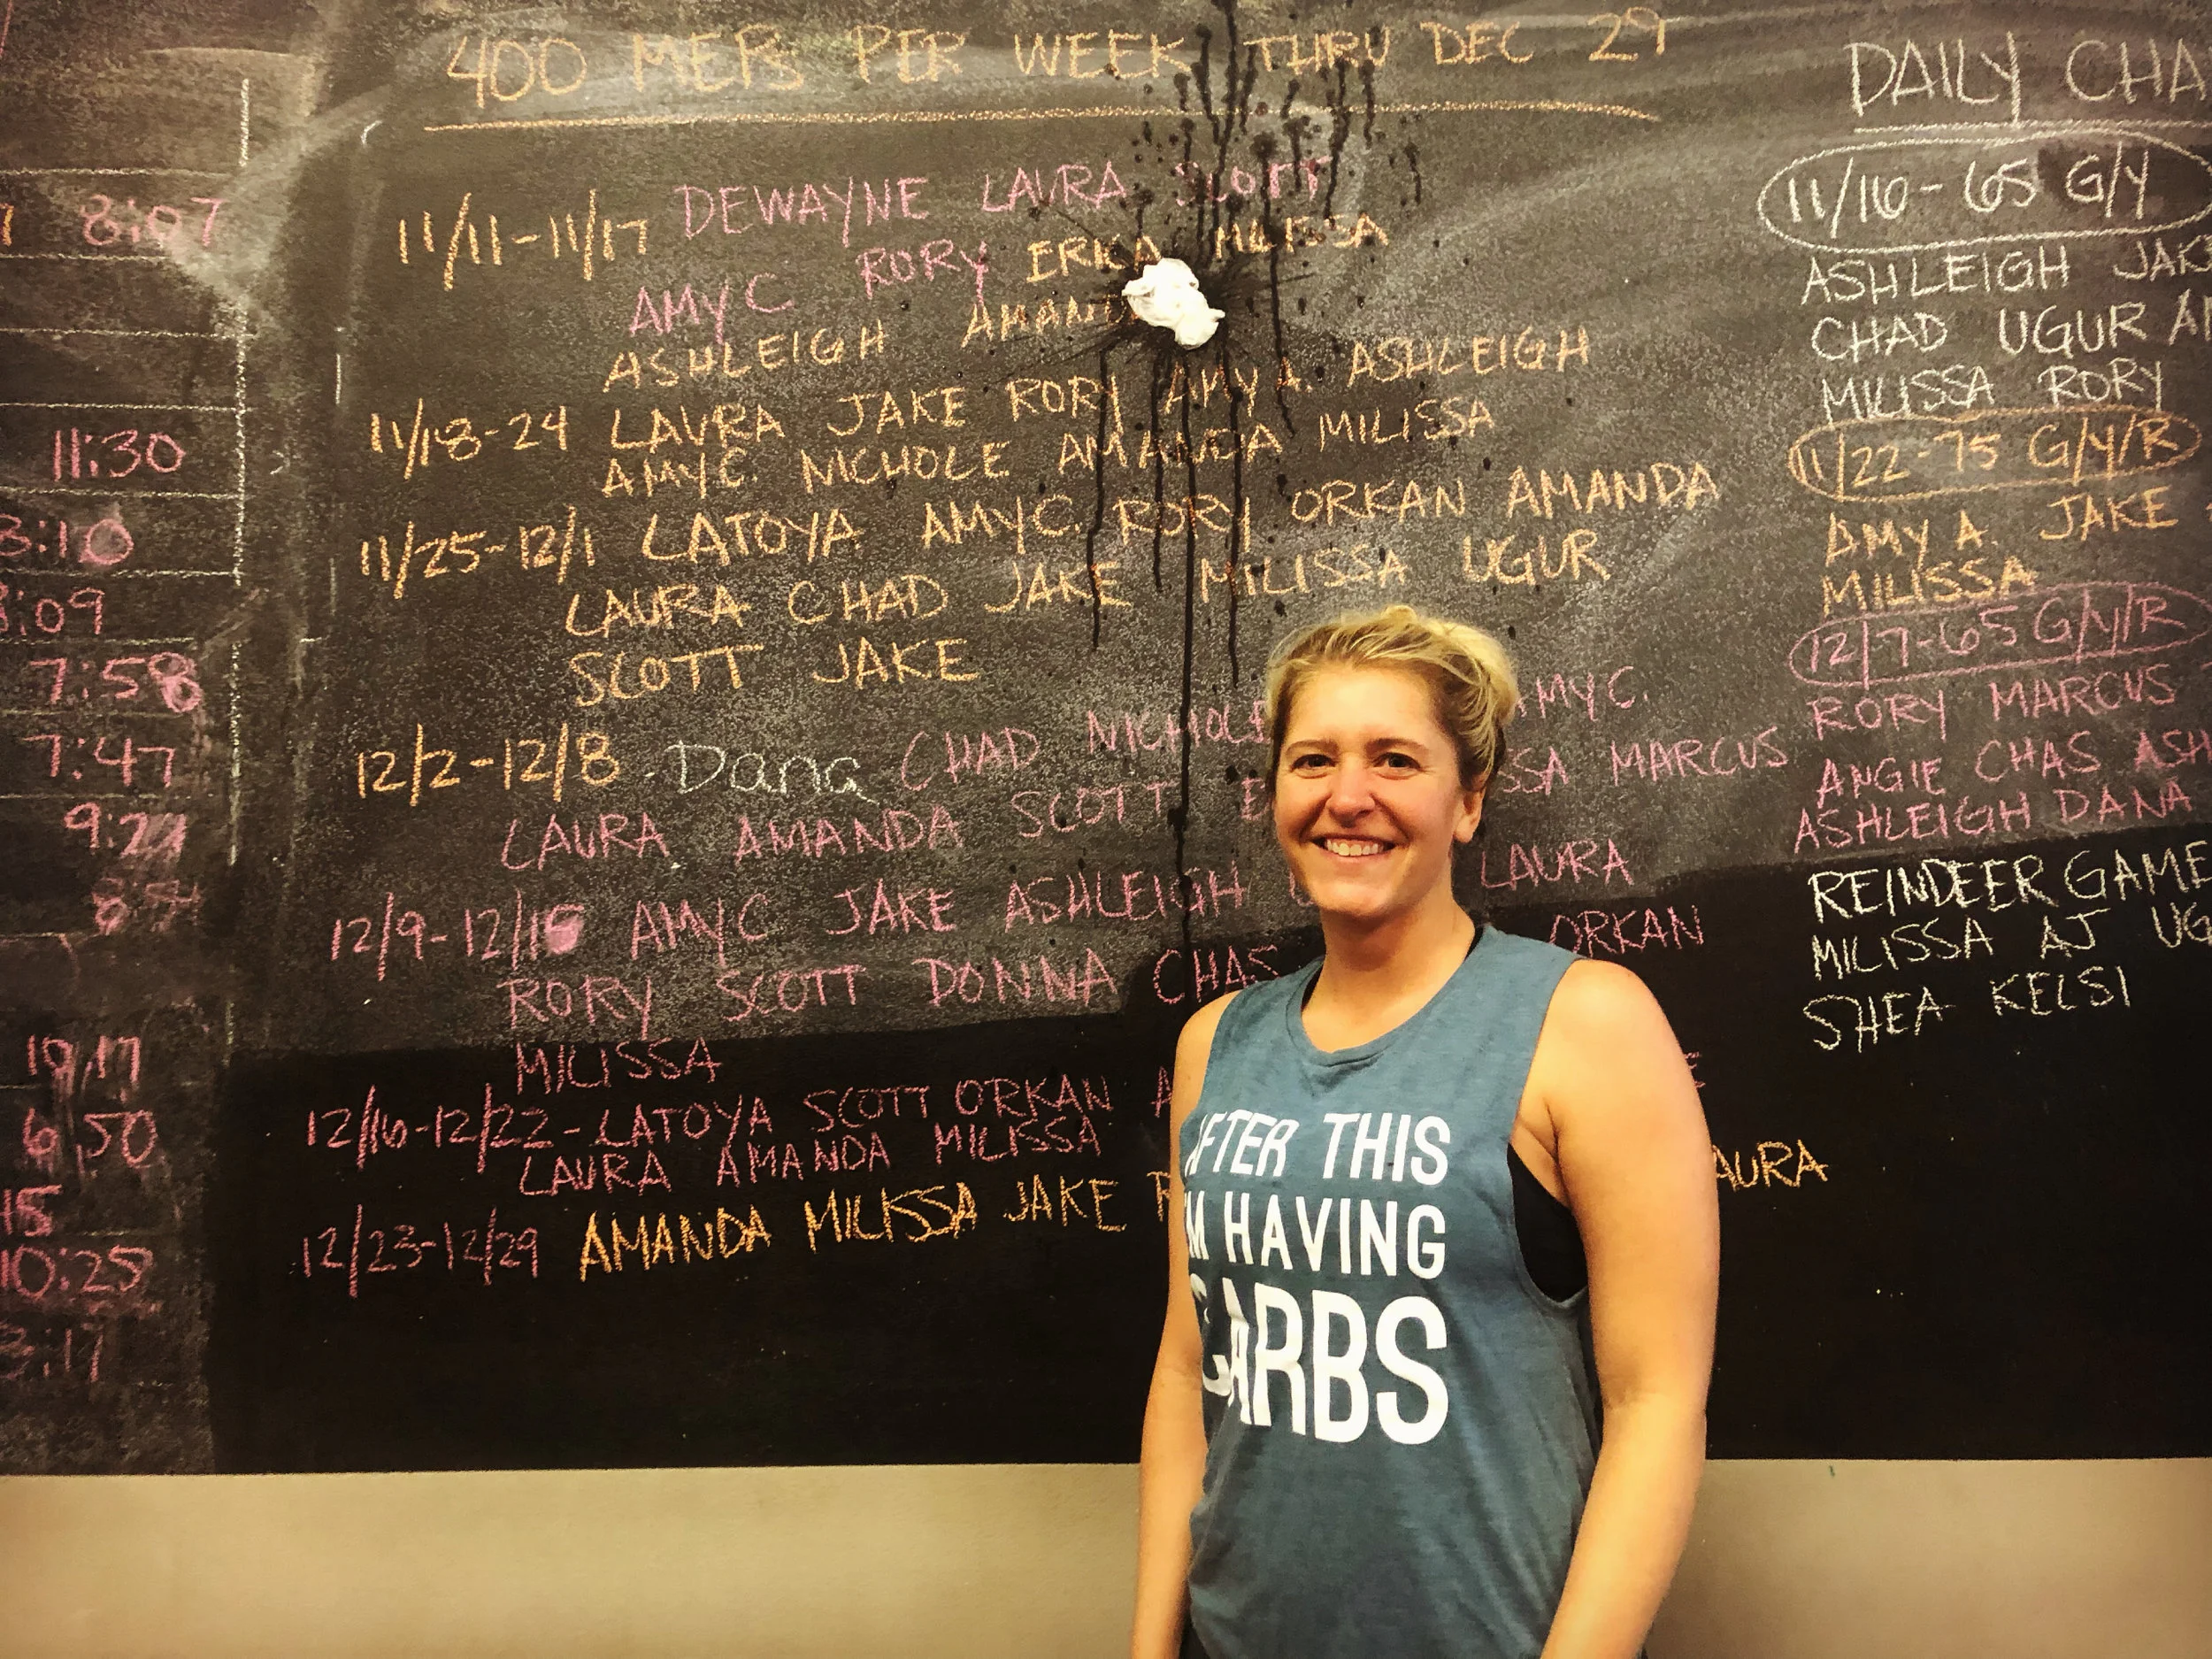 400 MEPs PER WEEK THRU DEC 29
11/11-11/17 DEWAYNE LAURA SCOTT
AMY C RORY ERICA MILISSA
ASHLEIGH
11/18-24 LAURA JAKE RORY AMY A. ASHLEIGH
AMY C. NICHOLE AMANDA MILISSA
11/25-12/1 LATOYA AMY C. RORY ORKAN AMANDA
LAURA CHAD JAKE MILISSA UGUR
SCOTT JAKE
12/2-12/8 Dana CHAD NICHOLE AMY C.
LAURA AMANDA SCOTT MARCUS
12/9-12/15 AMY C JAKE ASHLEIGH LAURA
RORY SCOTT DONNA CHAS ORKAN
MILISSA
12/16-12/22- LATOYA SCOTT ORKAN
LAURA AMANDA MILISSA
12/23-12/29 AMANDA MILISSA JAKE LAURA
DAILY CHA
11/16-65 G/Y
ASHLEIGH JAKE
CHAD UGUR
MILISSA RORY
11/22-75 G/Y/R
AMY A. JAKE
MILISSA
12/7-65 G/Y/R
RORY MARCUS
ANGIE CHAS ASH
ASHLEIGH DANA
REINDEER GAME
MILISSA AJ UG
SHEA KELSI
8:07
11:30
3:10
8:09
7:58
7:47
10:17
6:50
15
10:25
3:17
AFTER THIS
I'M HAVING
CARBS